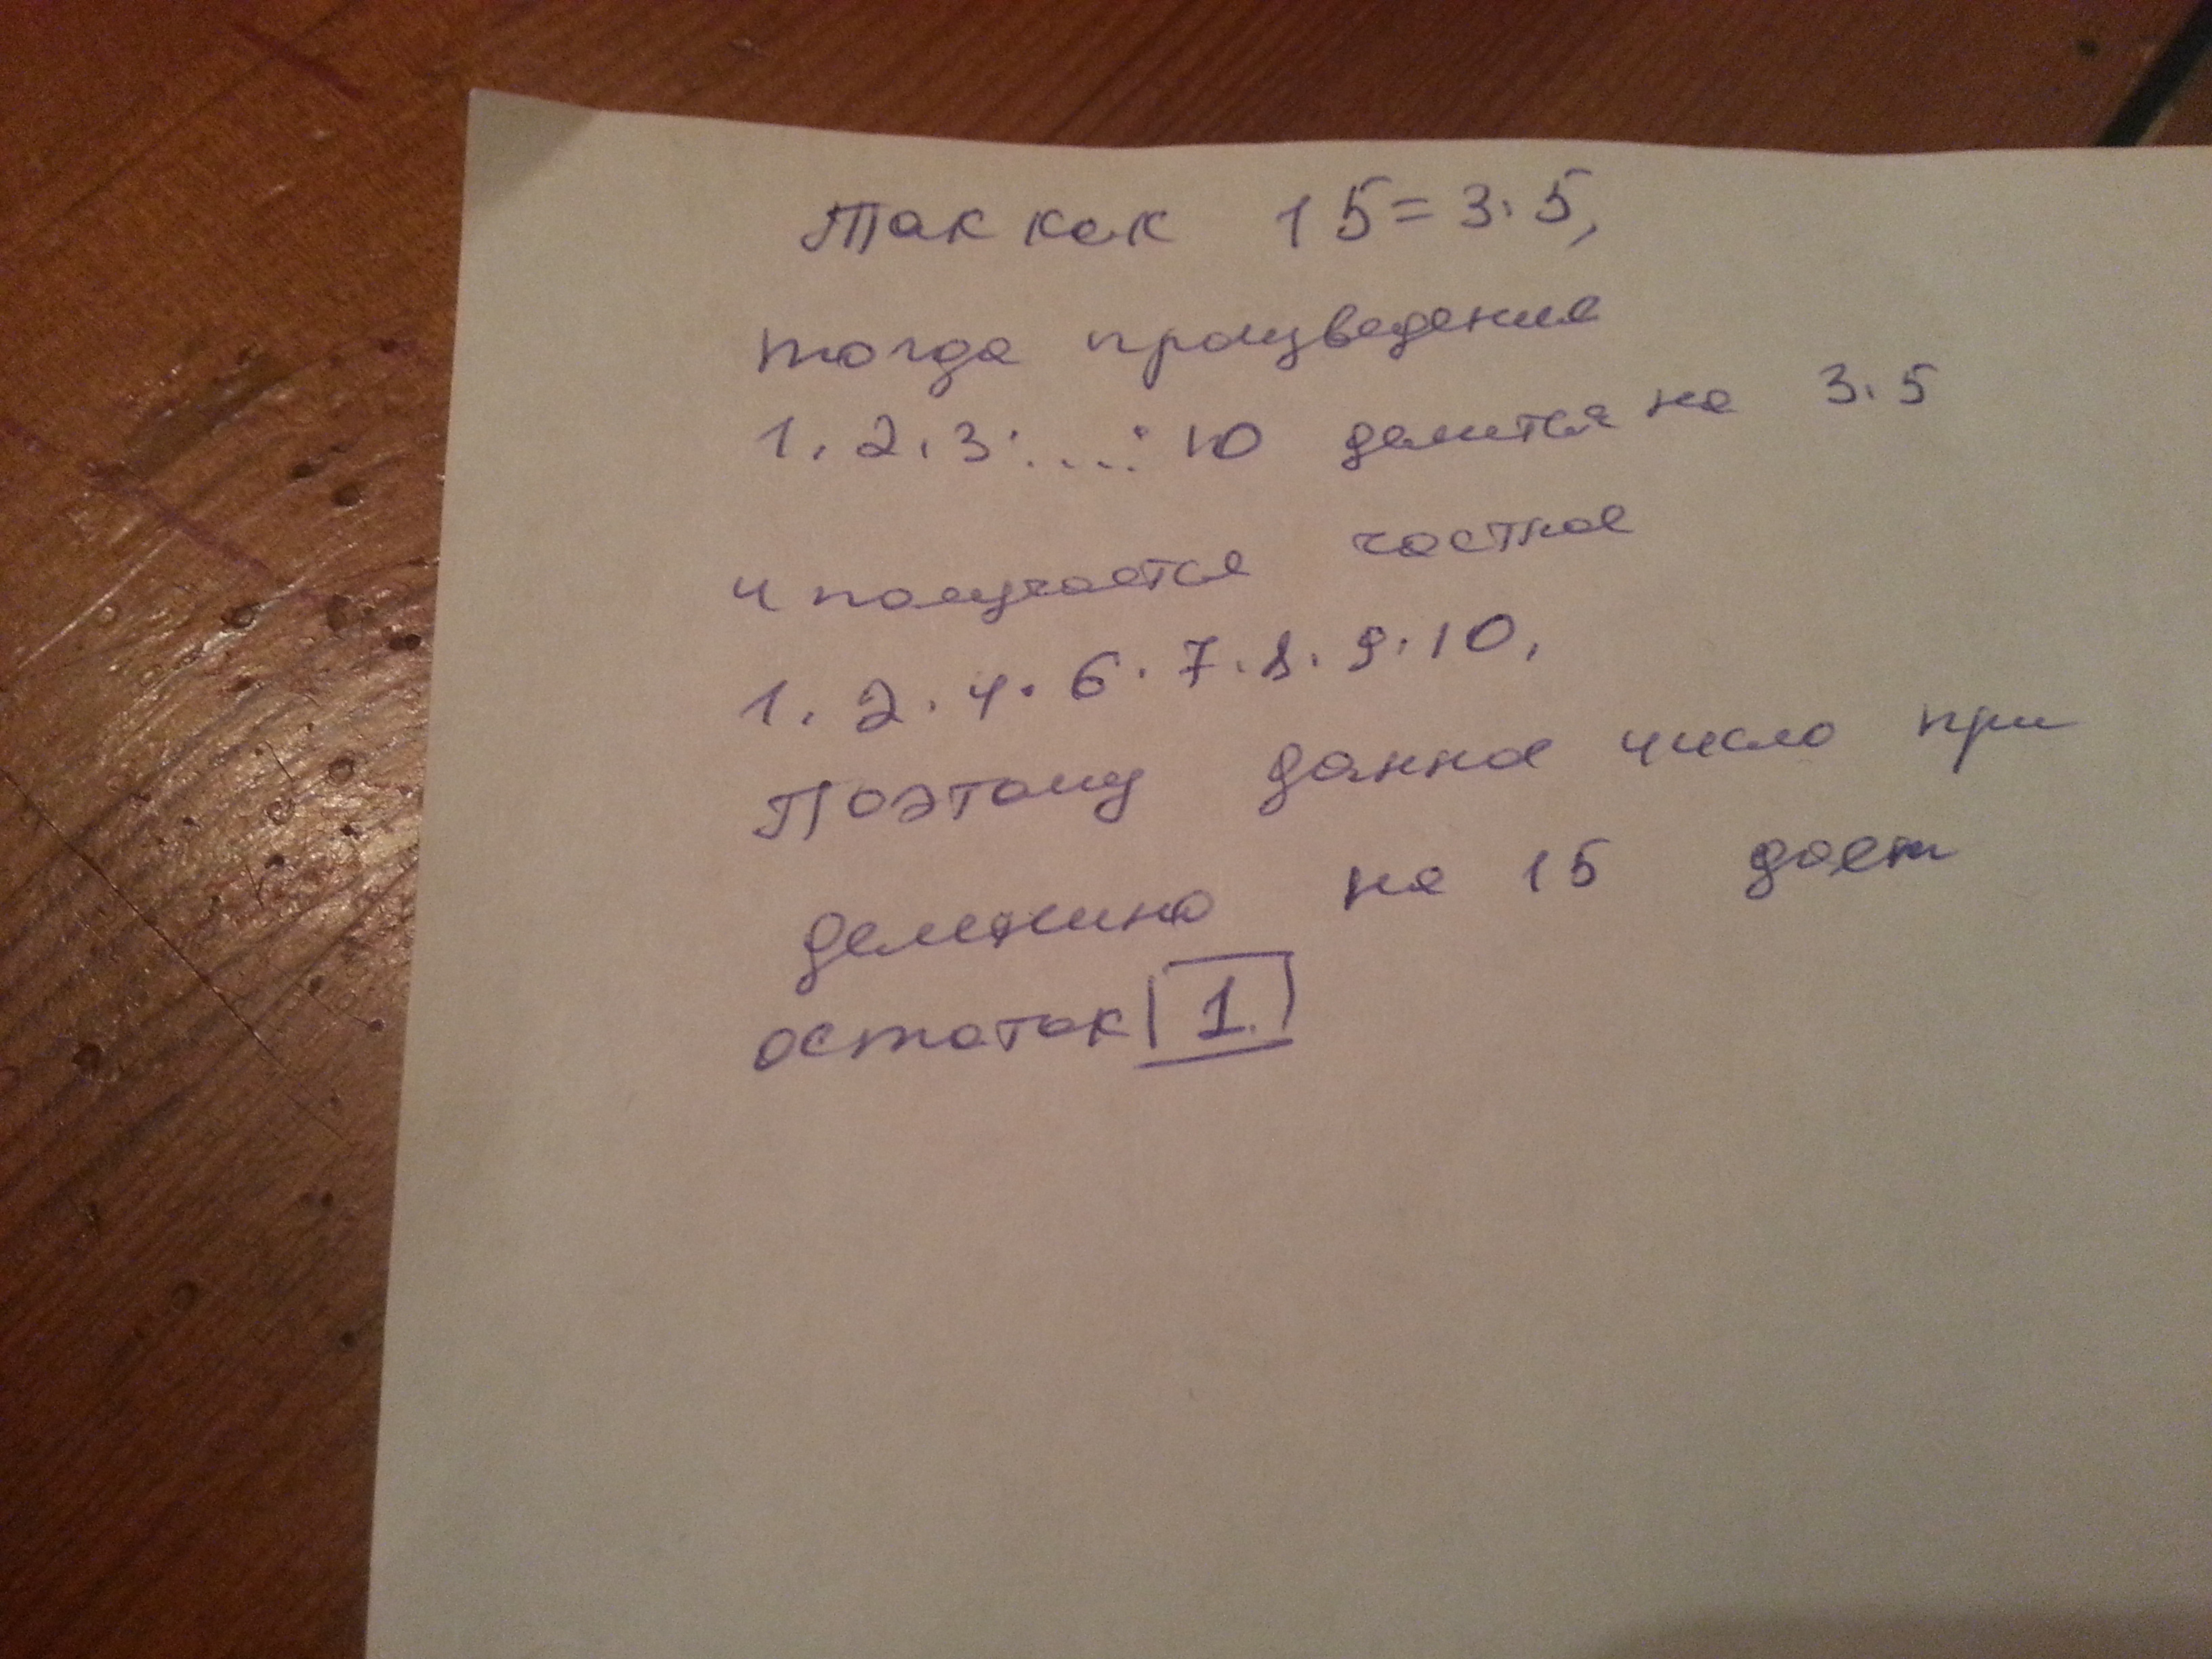 Так как 15=3·5,
тогда произведение
1·2·3·...·10 делится на 3·5
и получается частное
1·2·4·6·7·8·9·10,
Поэтому данное число при
делении на 15 даст
остаток 1.